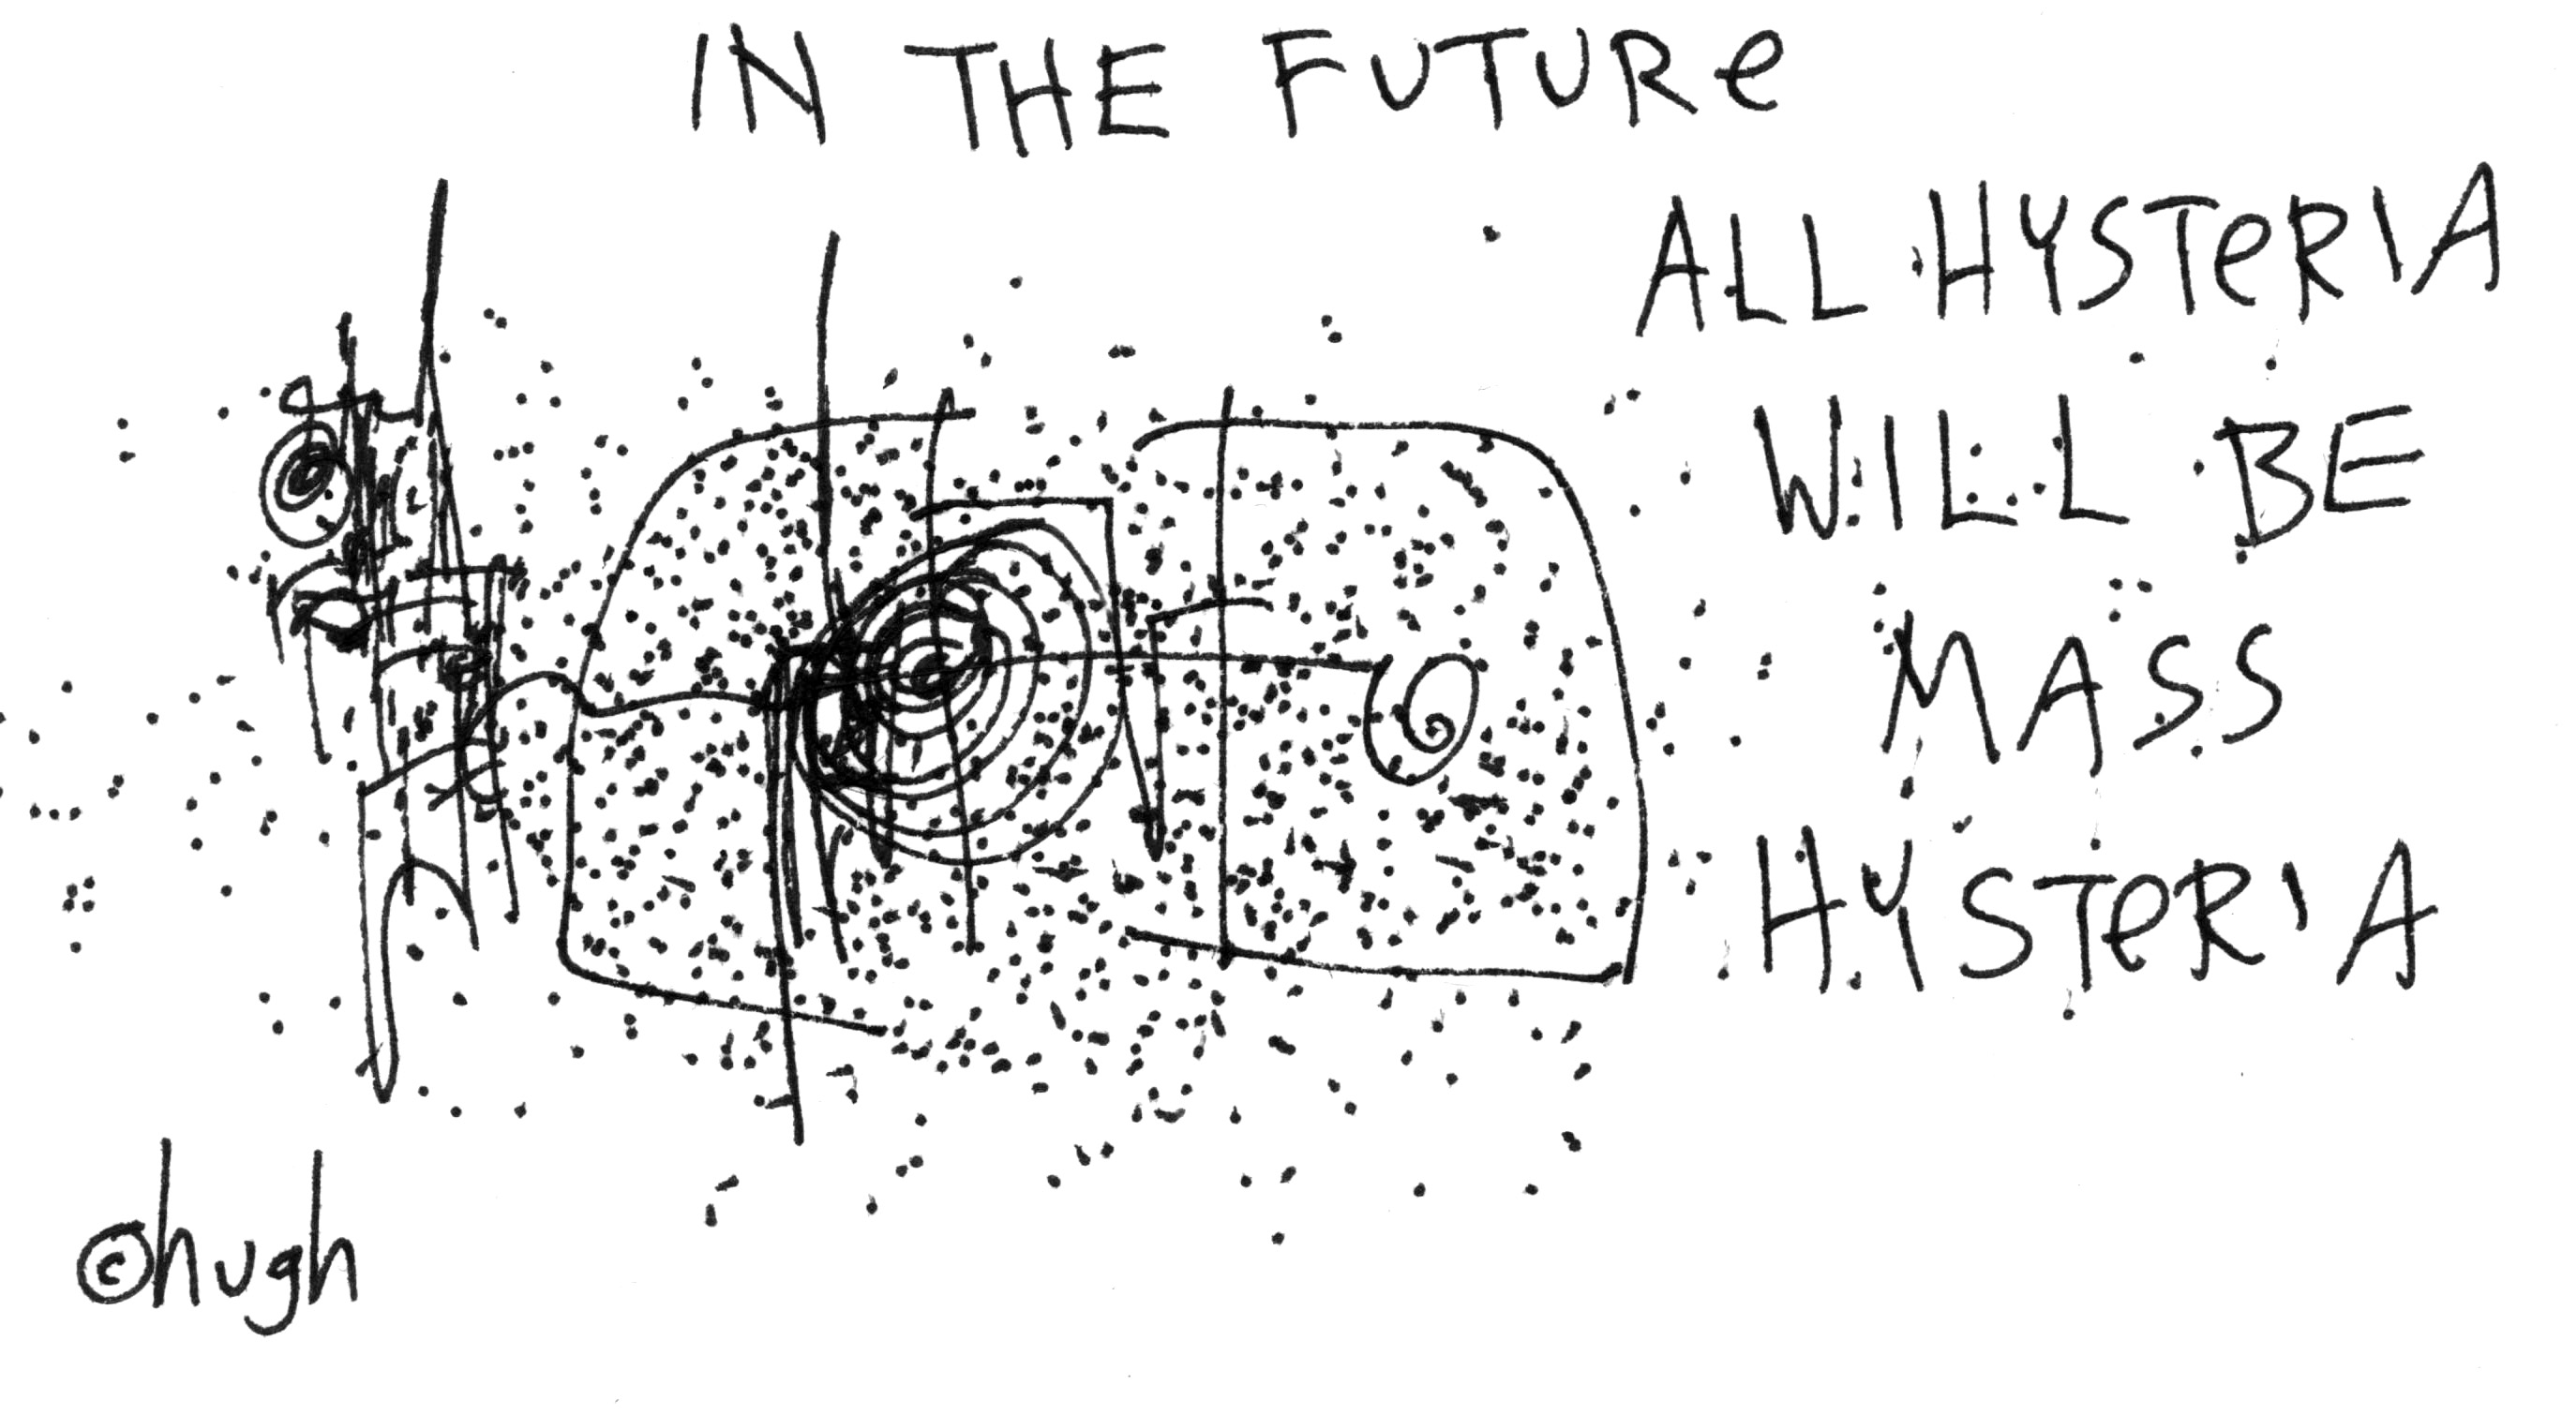 IN THE FUTURe
ALL HYSTeRIA
WILL BE
MASS
HYSTeRIA
©hugh